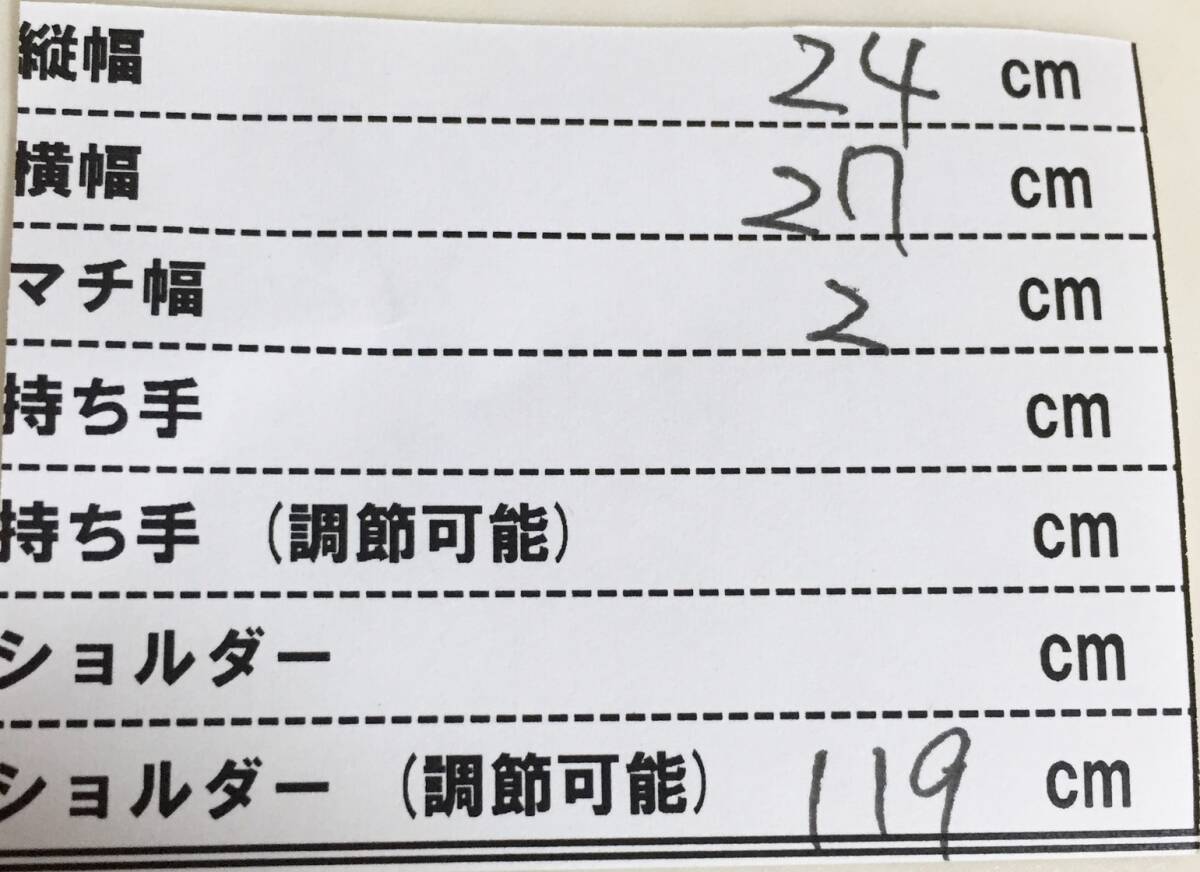 縦幅 24 cm
横幅 27 cm
マチ幅 2 cm
持ち手 cm
持ち手 (調節可能) cm
ショルダー cm
ショルダー (調節可能) 119 cm